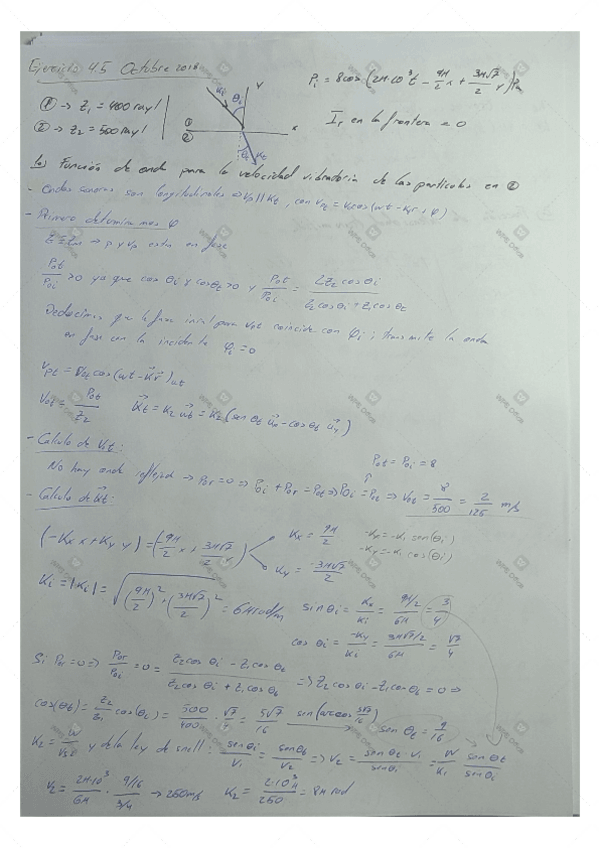 Ejercicio 4.5 Octubre 2018
Pi = 8cos(2π·10³t - 9π/2 x + 3π√7/2 y) Pa
① → Z1 = 400 rayl
② → Z2 = 500 rayl
Ki θi y x ① ② θt Kt
Ir en la frontera = 0
b) Función de onda para la velocidad vibratoria de las partículas en ②
- Ondas sonoras son longitudinales ⇒ Vp || Kt, con
- Primero determinamos φ
⇒ p y vp están en fase
Pot/Poi > 0 ya que cos θi y cos θt > 0 y Pot/Poi = 2Z2 cos θi / (Z2 cos θi + Z1 cos θt)
Deducimos que la fase inicial para Vot coincide con φi; transmite la onda
en fase con la incidente φi = 0
Vpt = Vot cos(wt - K⃗r⃗) ut
Vot = Pot/Z2 K⃗t = K2 u⃗t = K2 (sen θt u⃗x - cos θt u⃗y)
- Cálculo de Vot:
Pot = Poi = 8
No hay onda reflejada → Por = 0 ⇒ Poi + Por = Pot ⇒ Poi = Pot ⇒ Vot = 8/500 = 2/125 m/s
- Cálculo de K⃗t:
(-Kx x + Ky y) = (-9π/2 x + 3π√7/2 y) Kx = 9π/2 -Kx = -K1 sen(θi)
Ky = -3π√7/2 -Ky = -K1 cos(θi)
Ki = |Ki| = √((9π/2)² + (3π√7/2)²) = 6π rad/m sin θi = Kx/Ki = 9π/2/6π = 3/4
cos θi = -Ky/Ki = 3π√7/2/6π = √7/4
Si Por = 0 ⇒ Por/Poi = 0 = (Z2 cos θi - Z1 cos θt)/(Z2 cos θi + Z1 cos θt) ⇒ Z2 cos θi - Z1 cos θt = 0 ⇒
cos(θt) = Z2/Z1 cos(θi) = 500/400 · √7/4 = 5√7/16 sen θt = 9/16
K2 = w/V2 y de la ley de snell: sen θi/V1 = sen θt/V2 ⇒ V2 = sen θt · V1/sen θi = W/K1 sen θt/sen θi
V2 = 2π·10³/6π · 9/16/3/4 → 250 m/s K2 = 2·10³π/250 = 8π rad